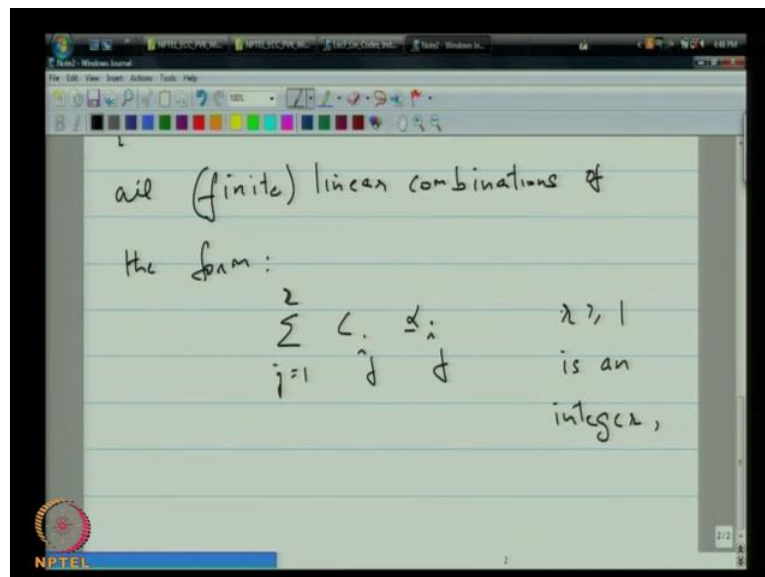 Note2 - Windows Journal
File Edit View Insert Actions Tools Help
100%
all (finite) linear combinations of
the form:
r
Σ c_{i_j} α_{i_j} r ≥ 1
j=1
is an
integer,
2/2
2
NPTEL